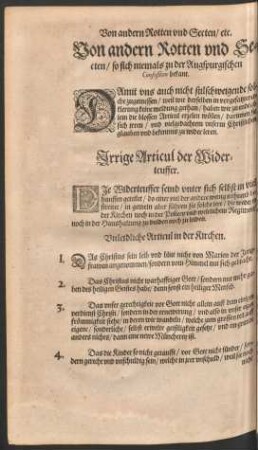 Von andern Rotten vnd Secten / etc.
Von andern Rotten vnd Se-
cten / so sich niemals zu der Augspurgischen
Confession bekant.
DAmit vns auch nicht stilschweigende solche
zugemessen / weil wir derselben in vorgesetzter
klerung keine meldung gethan / haben wir zu
die blossen Articul erzelen wöllen / darinnen
sich irren / vnd vielgedachtem vnserm Christlichen
glauben vnd bekentnis zu wider leren.
Irrige Articul der Wider-
teuffer.
DIe Widerteuffer seind vnter sich selbst in viel
hauffen geteilet / da einer viel der andere wenig
in gemein aber führen sie solche lere / die weder in
der Kirchen noch in der Policey vnd weltlichem Regiment
noch in der Haushaltung zu dulden noch zu leiden.
Vnleidliche Articul in der Kirchen.
1. DAs Christus sein leib vnd blut nicht von Marien der Jung-
frawen angenommen / sondern vom Himmel mit sich gebracht.
2. Das Christus nicht warhafftiger Gott / sondern nur mehr ga-
ben des heiligen Geistes habe / denn sonst ein heiliger Mensch.
3. Das vnser gerechtigkeit vor Gott nicht allein auff dem einigen
verdienst Christi / sondern in der ernewerung / vnd also in vnser eigen
frömmigkeit stehe / in deren wir wandeln / welche zum grossen teil auff
eigene / sonderliche / selbst erwelte geistligkeit gesetzt / vnd im grund
anders nichts / dann eine newe Müncherey ist.
4. Das die Kinder so nicht getaufft / vor Gott nicht sünder / son-
dern gerecht vnd vnschuldig sein / welche in jrer vnschuld / weil sie noch